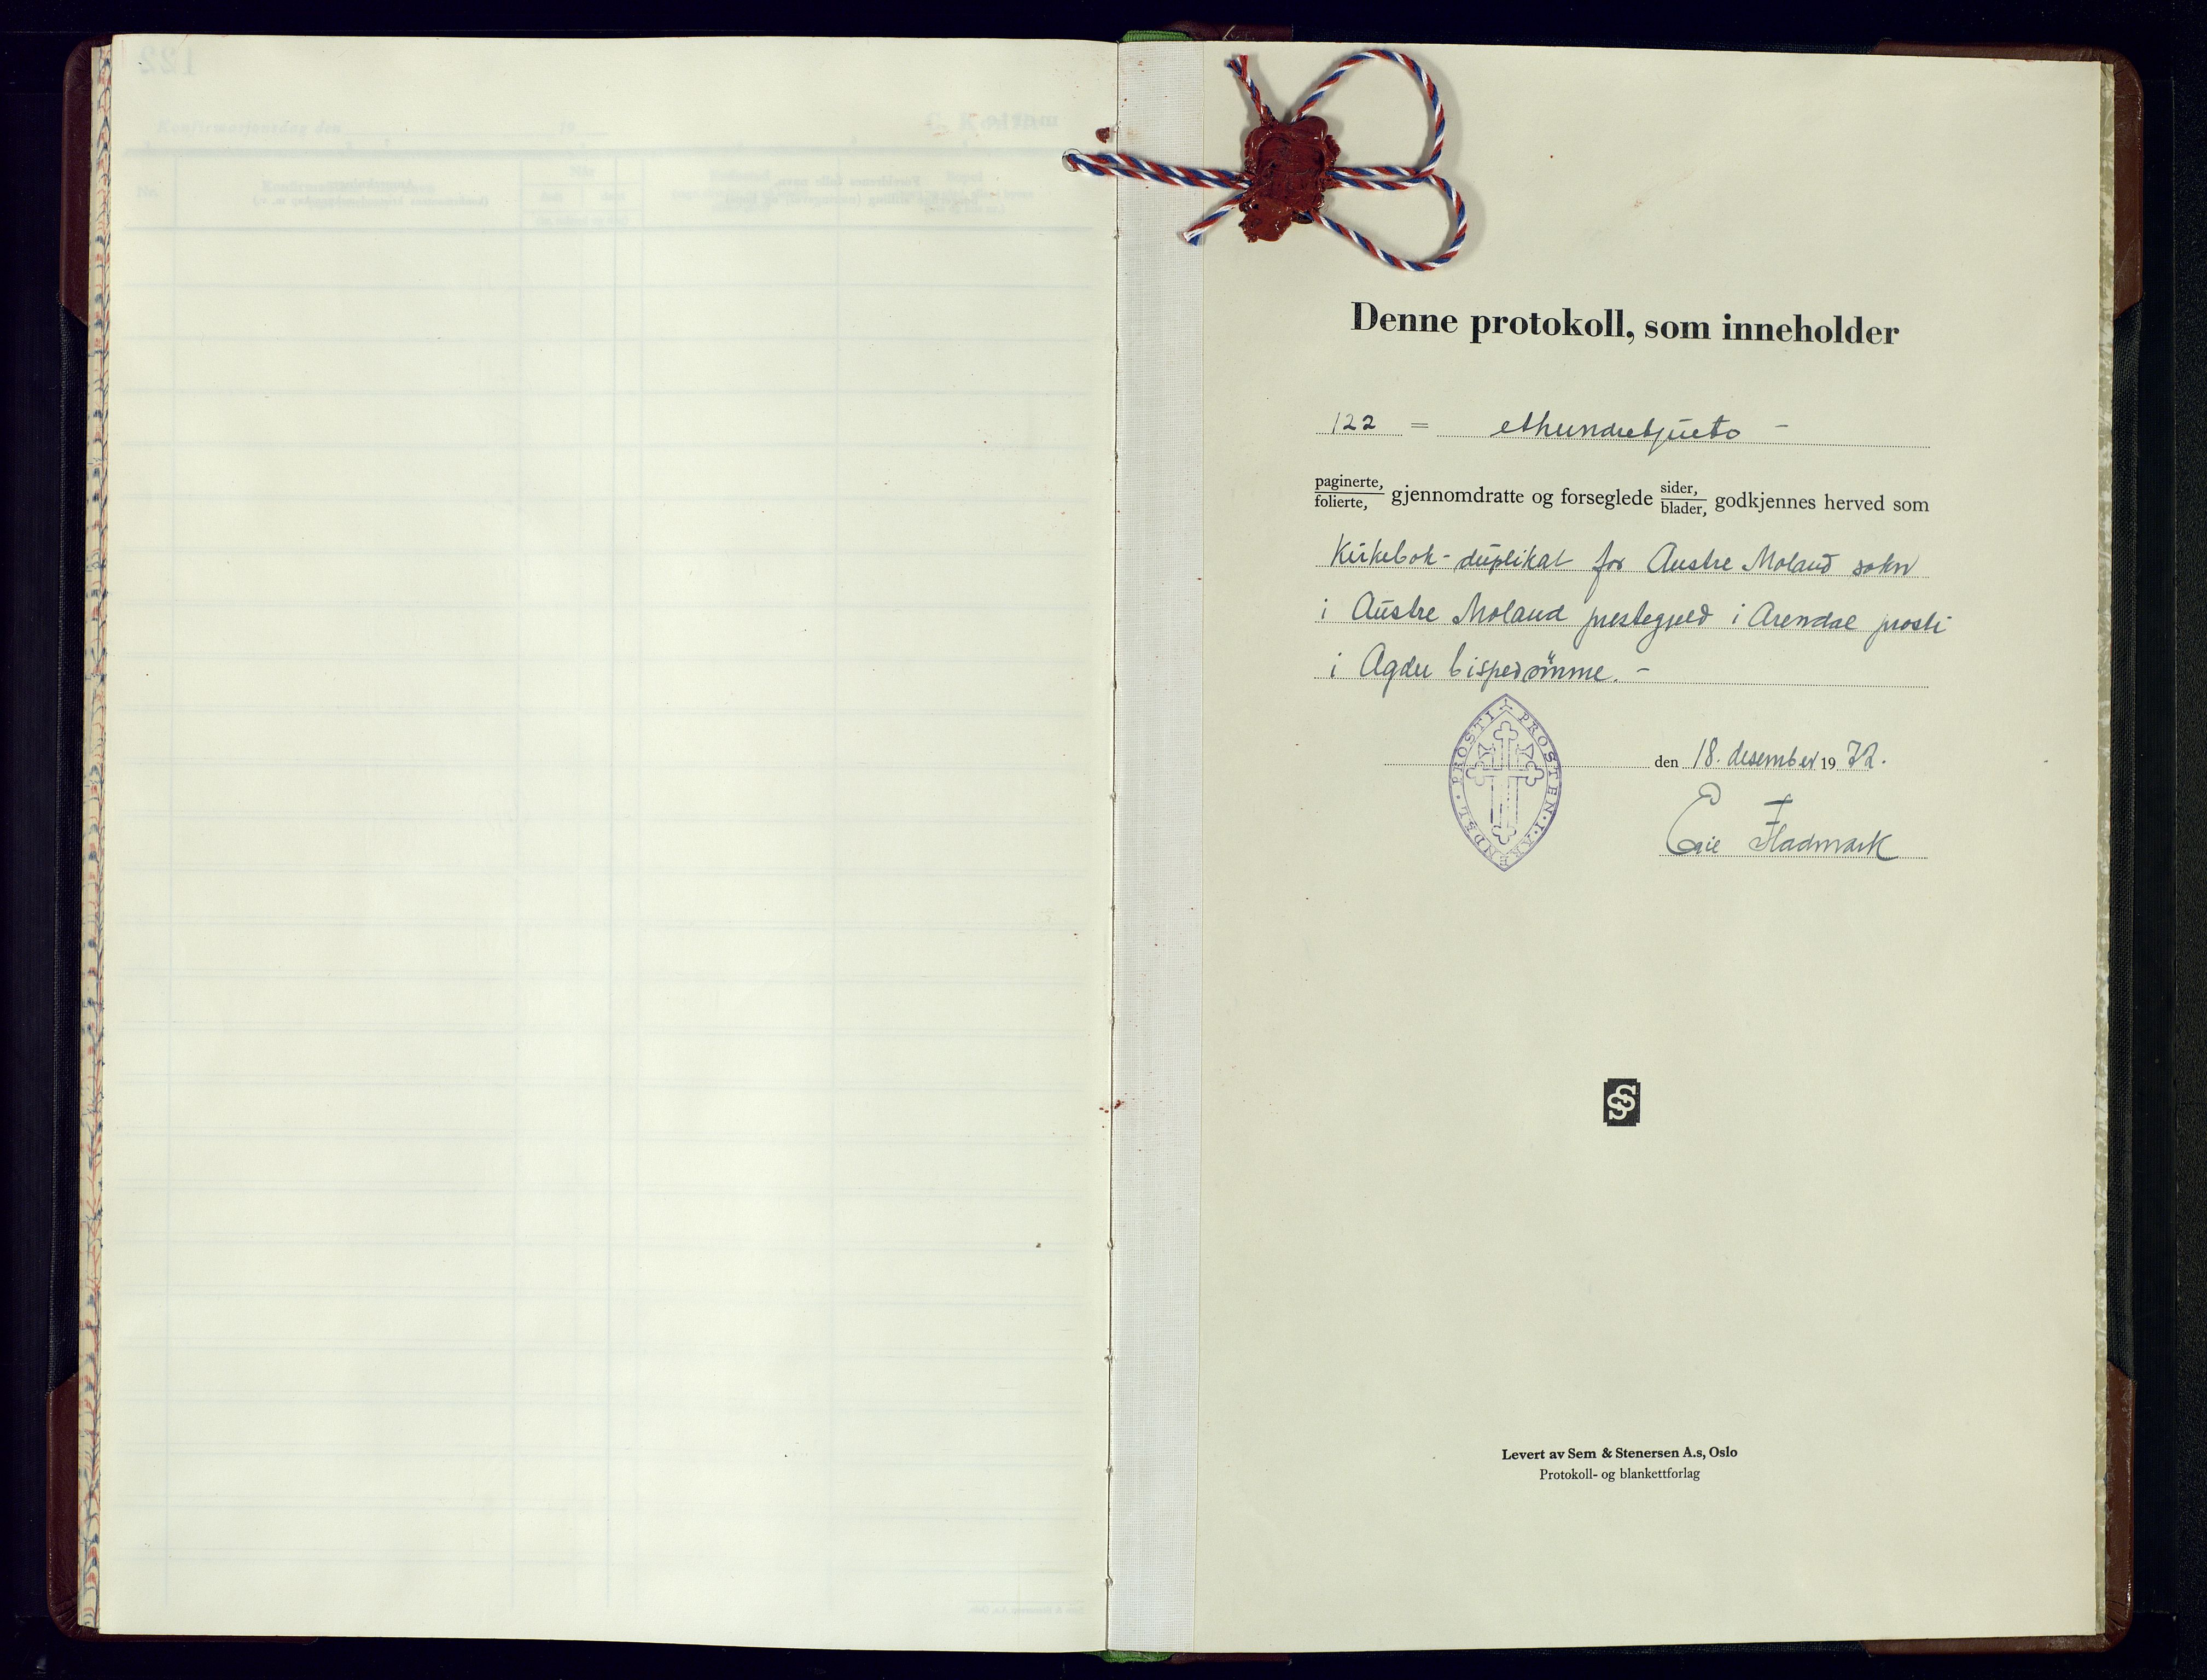 Denne protokoll, som inneholder
122 = ethundretjueto -
paginerte, folierte, gjennomdratte og forseglede sider, blader, godkjennes herved som
Kirkebok-duplikat for Austre Moland sokn
i Austre Moland prestegjeld i Arendal prosti
i Agder bispedømme. -
PROSTEN · I · ARENDAL · PROSTI
den 18. desember 1972.
Fladmark
SS
Levert av Sem & Stenersen A.s, Oslo
Protokoll- og blankettforlag
122
Konfirmasjonsdag den 19